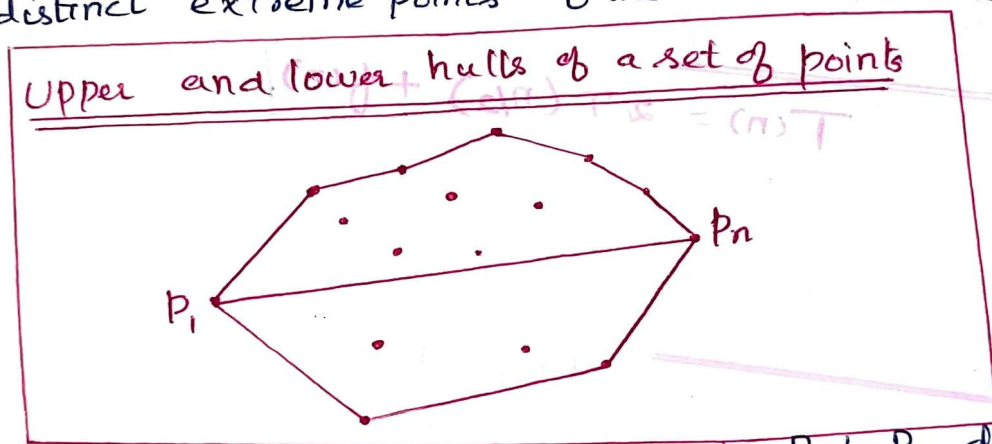 distinct extreme points
Upper and lower hulls of a set of points
T(n) =
Pn
P1